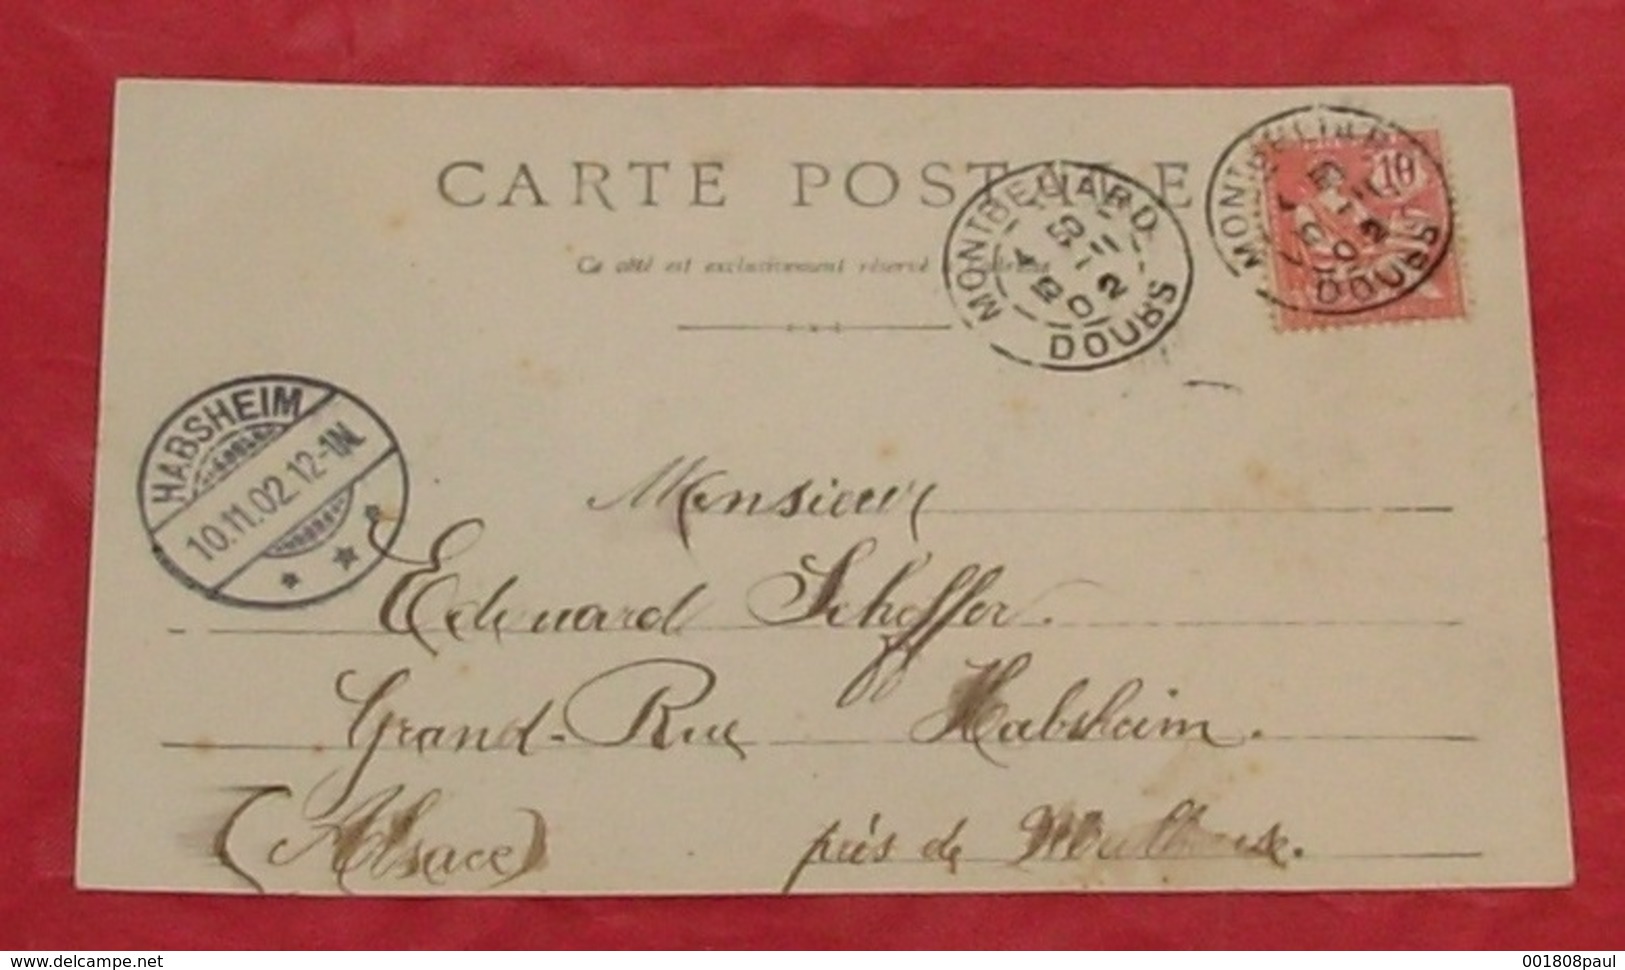 CARTE POSTALE
Ce côté est exclusivement réservé à l'adresse
MONTBELIARD
DOUBS
MONTBELIARD
DOUBS
10
HABSHEIM
10.11.02.12-1N.
Monsieur
Edouard Scheffer.
Grand-Rue Habsheim.
(Alsace) près de Mulhouse.
www.delcampe.net
001808paul